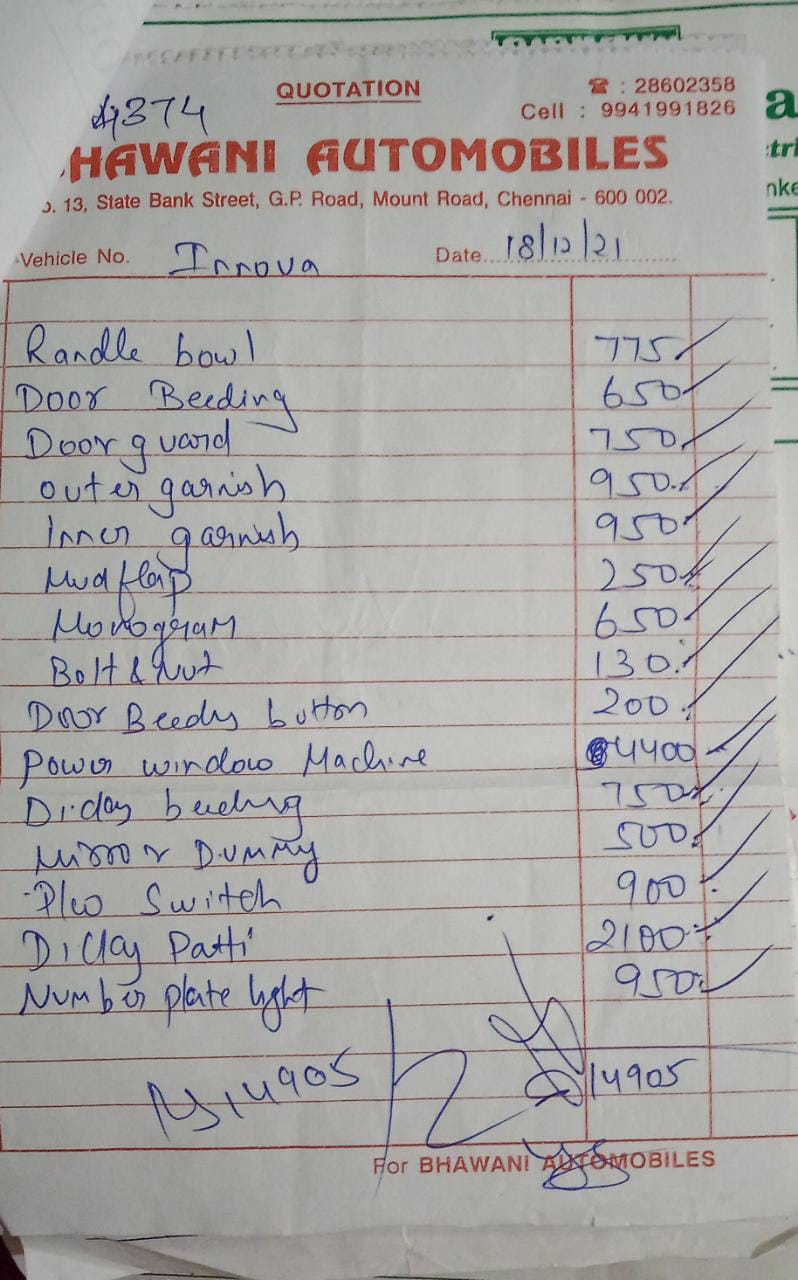 QUOTATION
☎ : 28602358
4374
Cell : 9941991826
HAWANI AUTOMOBILES
. 13, State Bank Street, G.P. Road, Mount Road, Chennai - 600 002.
Vehicle No. Innova Date 18/12/21
Randle bowl 775
Door Beeding 650
Door guard 750
outer garnish 950
Inner garnish 950
Mud flap 250
Monogram 650
Bolt & Nut 130
Door Beedy button 200
Power window Machine 4400
Diday beeding 750
Mirror Dummy 500
P/w Switch 900
Diday Patti 2100
Number plate light 950
14905 14905
For BHAWANI AUTOMOBILES
a
ctri
nke